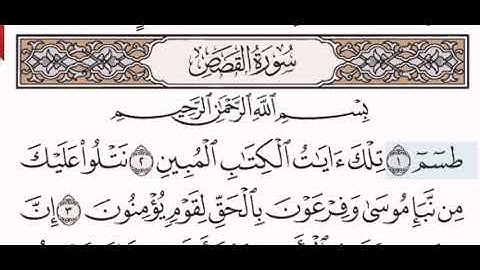 سُورَةُ القَصَصِ
بِسْمِ ٱللَّهِ ٱلرَّحْمَٰنِ ٱلرَّحِيمِ
طسٓمٓ ١ تِلْكَ ءَايَٰتُ ٱلْكِتَٰبِ ٱلْمُبِينِ ٢ نَتْلُوا۟ عَلَيْكَ
مِن نَّبَإِ مُوسَىٰ وَفِرْعَوْنَ بِٱلْحَقِّ لِقَوْمٍ يُؤْمِنُونَ ٣ إِنَّ